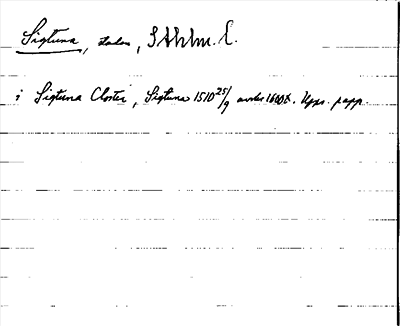 Sigtuna, stad, Sthlm. l.
i Sigtuna Closter, Sigtuna 1510 25/9 avskr 1600t. Upps. papp.